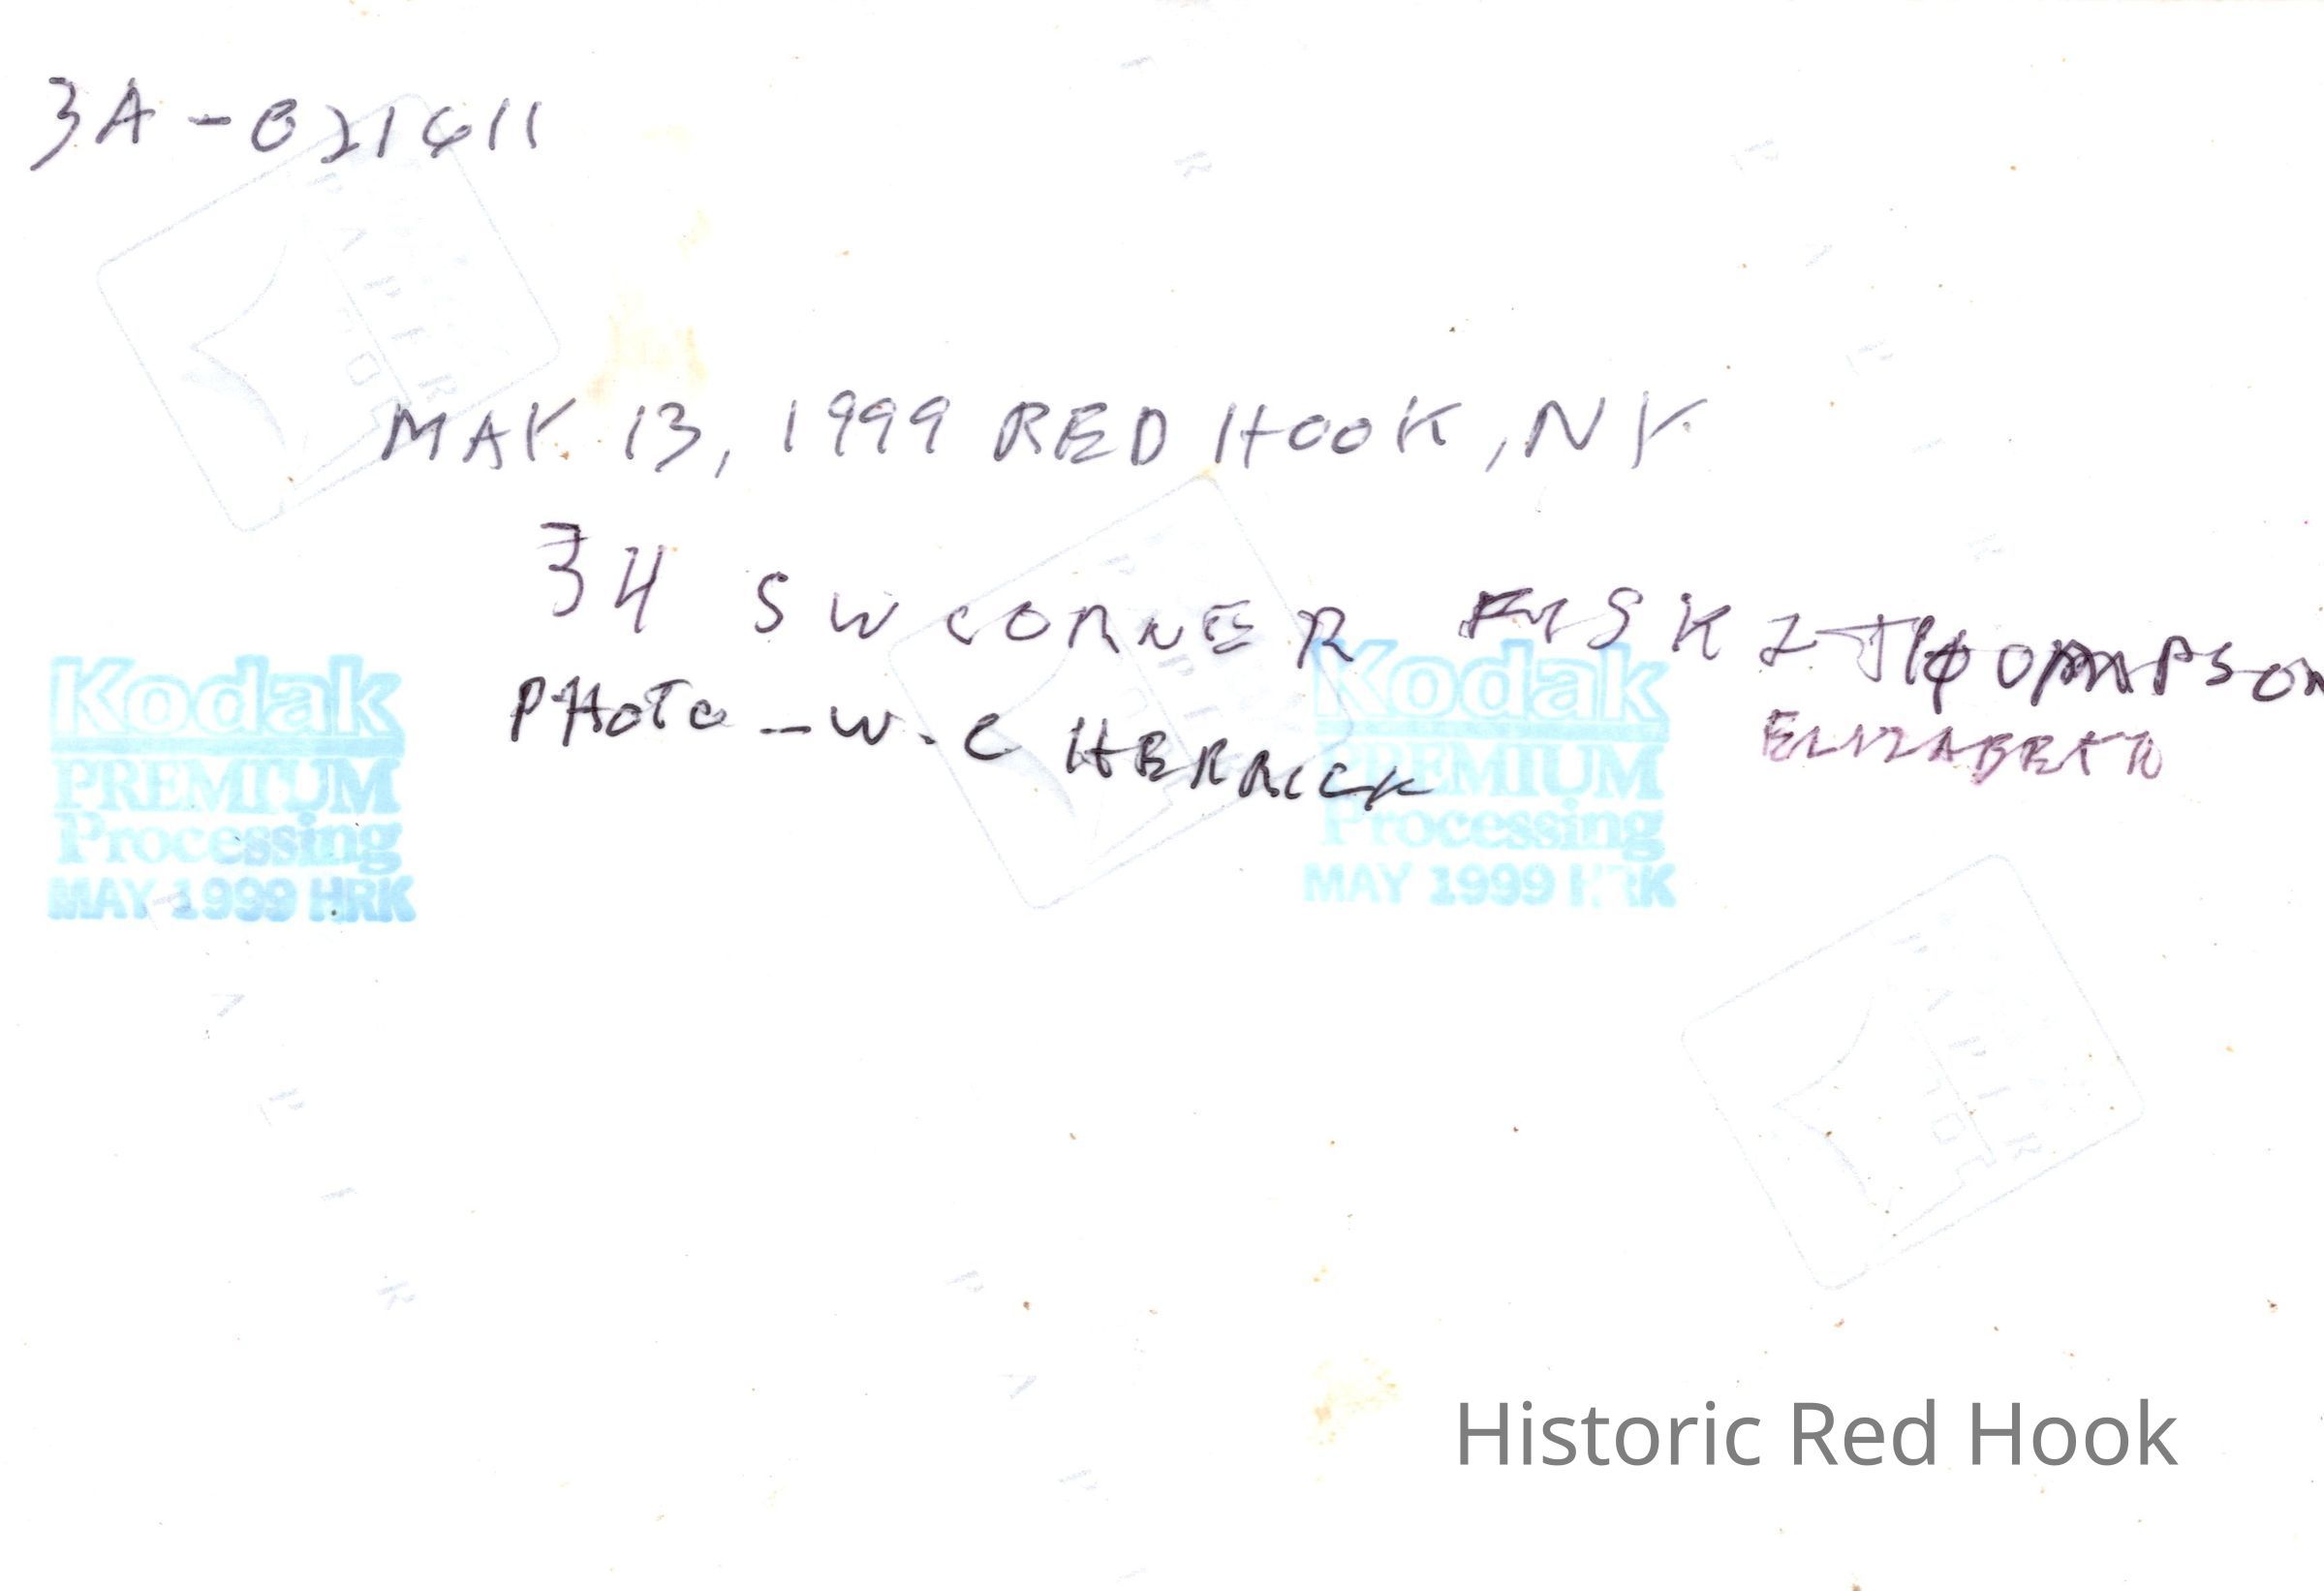 3A-021611
MAY 13, 1999 RED HOOK, NY.
34 SW CORNER FISK & THOMPSON
ELIZABETH
PHOTO - W. C HERRICK
Kodak
PREMIUM
Processing
MAY 1999 HRK
Kodak
PREMIUM
Processing
MAY 1999 HRK
Historic Red Hook